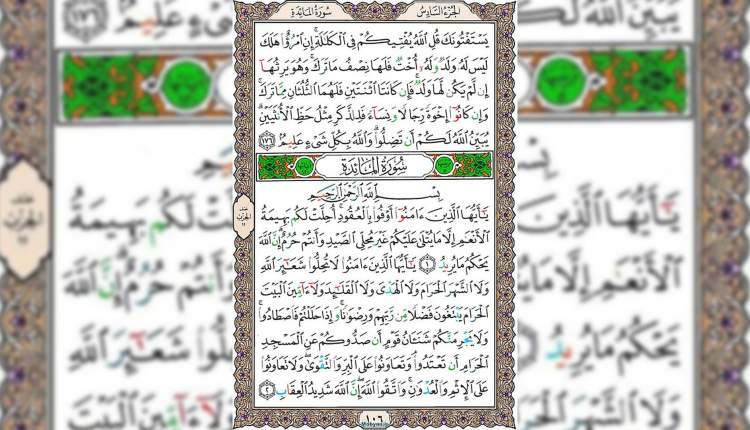 سُورَةُ المَائِدَةِ
الجُزْءُ السَّادِسُ
يَسْتَفْتُونَكَ قُلِ ٱللَّهُ يُفْتِيكُمْ فِى ٱلْكَلَٰلَةِ ۚ إِنِ ٱمْرُؤٌا۟ هَلَكَ
لَيْسَ لَهُۥ وَلَدٌ وَلَهُۥٓ أُخْتٌ فَلَهَا نِصْفُ مَا تَرَكَ ۚ وَهُوَ يَرِثُهَآ
إِن لَّمْ يَكُن لَّهَا وَلَدٌ ۚ فَإِن كَانَتَا ٱثْنَتَيْنِ فَلَهُمَا ٱلثُّلُثَانِ مِمَّا تَرَكَ ۚ
وَإِن كَانُوٓا۟ إِخْوَةً رِّجَالًا وَنِسَآءً فَلِلذَّكَرِ مِثْلُ حَظِّ ٱلْأُنثَيَيْنِ ۗ
يُبَيِّنُ ٱللَّهُ لَكُمْ أَن تَضِلُّوا۟ ۗ وَٱللَّهُ بِكُلِّ شَىْءٍ عَلِيمٌۢ ١٧٦
سُورَةُ المَائِدَةِ
بِسْمِ ٱللَّهِ ٱلرَّحْمَٰنِ ٱلرَّحِيمِ
يَٰٓأَيُّهَا ٱلَّذِينَ ءَامَنُوٓا۟ أَوْفُوا۟ بِٱلْعُقُودِ ۚ أُحِلَّتْ لَكُم بَهِيمَةُ
ٱلْأَنْعَٰمِ إِلَّا مَا يُتْلَىٰ عَلَيْكُمْ غَيْرَ مُحِلِّى ٱلصَّيْدِ وَأَنتُمْ حُرُمٌ ۗ إِنَّ ٱللَّهَ
يَحْكُمُ مَا يُرِيدُ ١ يَٰٓأَيُّهَا ٱلَّذِينَ ءَامَنُوا۟ لَا تُحِلُّوا۟ شَعَٰٓئِرَ ٱللَّهِ
وَلَا ٱلشَّهْرَ ٱلْحَرَامَ وَلَا ٱلْهَدْىَ وَلَا ٱلْقَلَٰٓئِدَ وَلَآ ءَآمِّينَ ٱلْبَيْتَ
ٱلْحَرَامَ يَبْتَغُونَ فَضْلًا مِّن رَّبِّهِمْ وَرِضْوَٰنًا ۚ وَإِذَا حَلَلْتُمْ فَٱصْطَادُوا۟ ۚ
وَلَا يَجْرِمَنَّكُمْ شَنَـَٔانُ قَوْمٍ أَن صَدُّوكُمْ عَنِ ٱلْمَسْجِدِ
ٱلْحَرَامِ أَن تَعْتَدُوا۟ ۘ وَتَعَاوَنُوا۟ عَلَى ٱلْبِرِّ وَٱلتَّقْوَىٰ ۖ وَلَا تَعَاوَنُوا۟
عَلَى ٱلْإِثْمِ وَٱلْعُدْوَٰنِ ۚ وَٱتَّقُوا۟ ٱللَّهَ ۖ إِنَّ ٱللَّهَ شَدِيدُ ٱلْعِقَابِ ٢
١٠٦